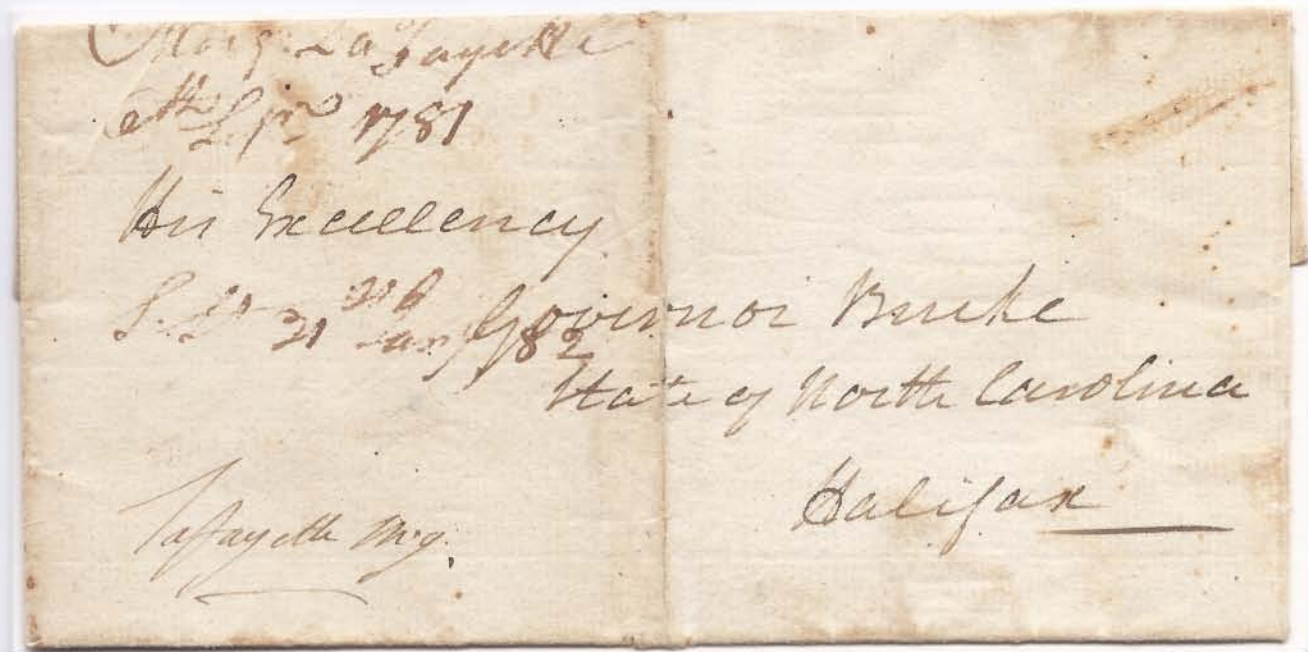 Marq. La Fayette
6th Sepr 1781
His Excellency
Governor Burke
21 Jany 82
State of North Carolina
Halifax
Lafayette Mg.